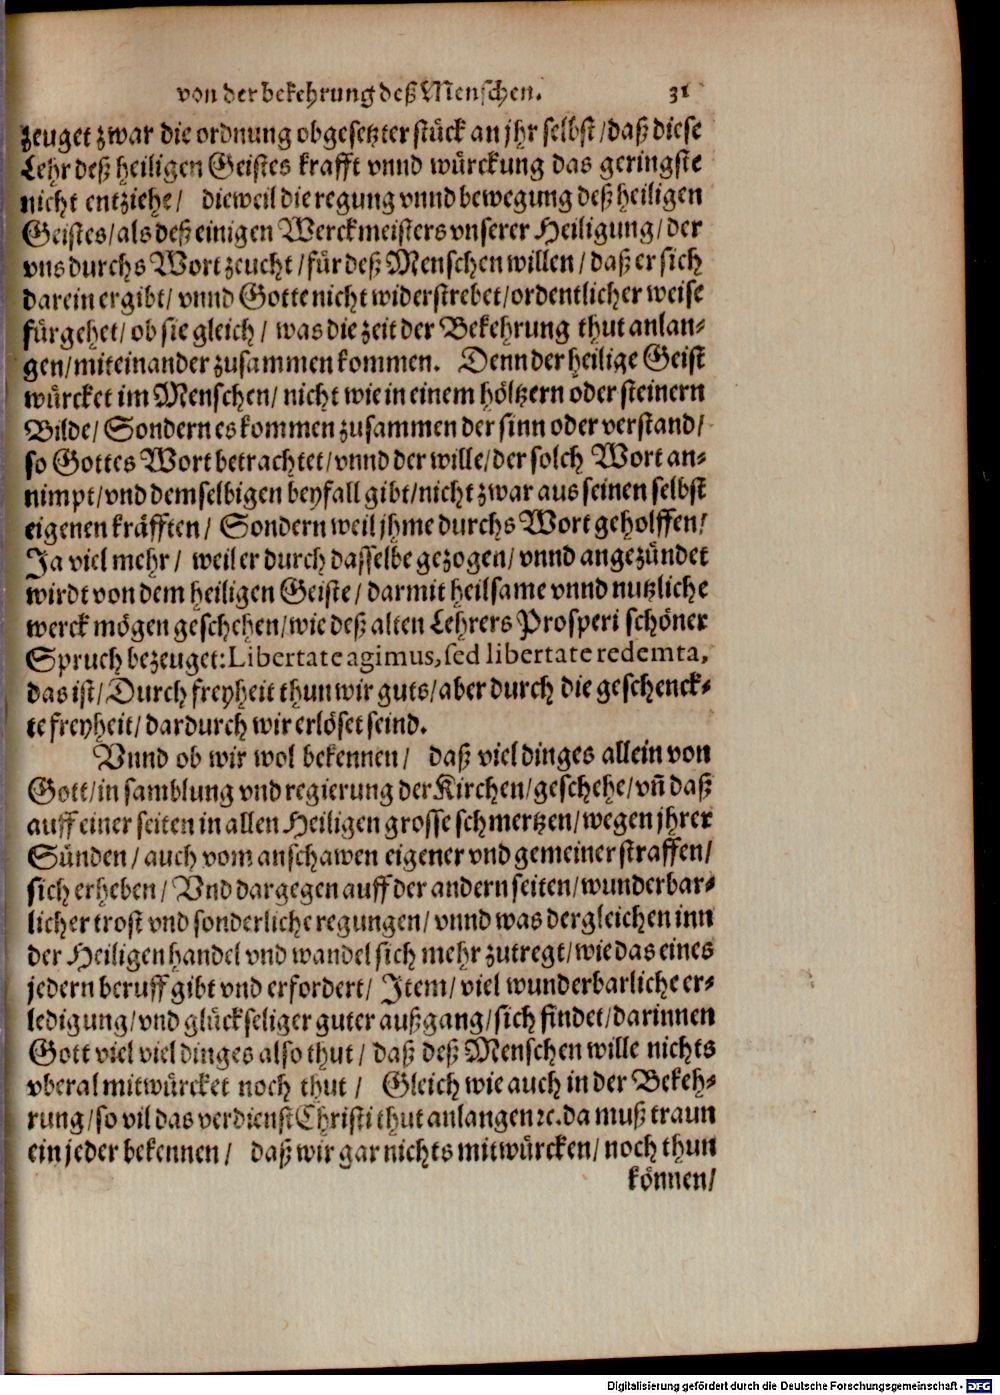 von der bekehrung deß Menschen. 31
zeuget zwar die ordnung obgesetzter stück an jhr selbst/ daß diese
Lehr deß heiligen Geistes krafft vnnd würckung das geringste
nicht entziehe/ dieweil die regung vnnd bewegung deß heiligen
Geistes/ als deß einigen Werckmeisters vnserer Heiligung/ der
vns durchs Wort zeucht/ für deß Menschen willen/ daß er sich
darein ergibt/ vnnd Gotte nicht widerstrebet/ ordentlicher weise
fürgehet/ ob sie gleich/ was die zeit der Bekehrung thut anlan-
gen/ miteinander zusammen kommen. Denn der heilige Geist
würcket im Menschen/ nicht wie in einem höltzern oder steinern
Bilde/ Sondern es kommen zusammen der sinn oder verstand/
so Gottes Wort betrachtet/ vnnd der wille/ der solch Wort an-
nimpt/ vnd demselbigen beyfall gibt/ nicht zwar aus seinen selbst
eigenen kräfften/ Sondern weil jhme durchs Wort geholffen/
Ja viel mehr/ weil er durch dasselbe gezogen/ vnnd angezündet
wirdt von dem heiligen Geiste/ darmit heilsame vnnd nutzliche
werck mögen geschehen/ wie deß alten Lehrers Prosperi schöner
Spruch bezeuget: Libertate agimus, sed libertate redemta,
das ist/ Durch freyheit thun wir guts/ aber durch die geschenck-
te freyheit/ dardurch wir erlöset seind.
Vnnd ob wir wol bekennen/ daß viel dinges allein von
Gott/ in samblung vnd regierung der Kirchen/ geschehe/ vñ daß
auff einer seiten in allen Heiligen grosse schmertzen/ wegen jhrer
Sünden/ auch vom anschawen eigener vnd gemeiner straffen/
sich erheben/ Vnd dargegen auff der andern seiten/ wunderbar-
licher trost vnd sonderliche regungen/ vnnd was dergleichen inn
der Heiligen handel vnd wandel sich mehr zutregt/ wie das eines
jedern beruff gibt vnd erfordert/ Item/ viel wunderbarliche er-
ledigung/ vnd glückseliger guter außgang/ sich findet/ darinnen
Gott viel viel dinges also thut/ daß deß Menschen wille nichts
vberal mitwürcket noch thut/ Gleich wie auch in der Bekeh-
rung/ so vil das verdienst Christi thut anlangen ꝛc. da muß traun
ein jeder bekennen/ daß wir gar nichts mitwürcken/ noch thun
können/
Digitalisierung gefördert durch die Deutsche Forschungsgemeinschaft - DFG